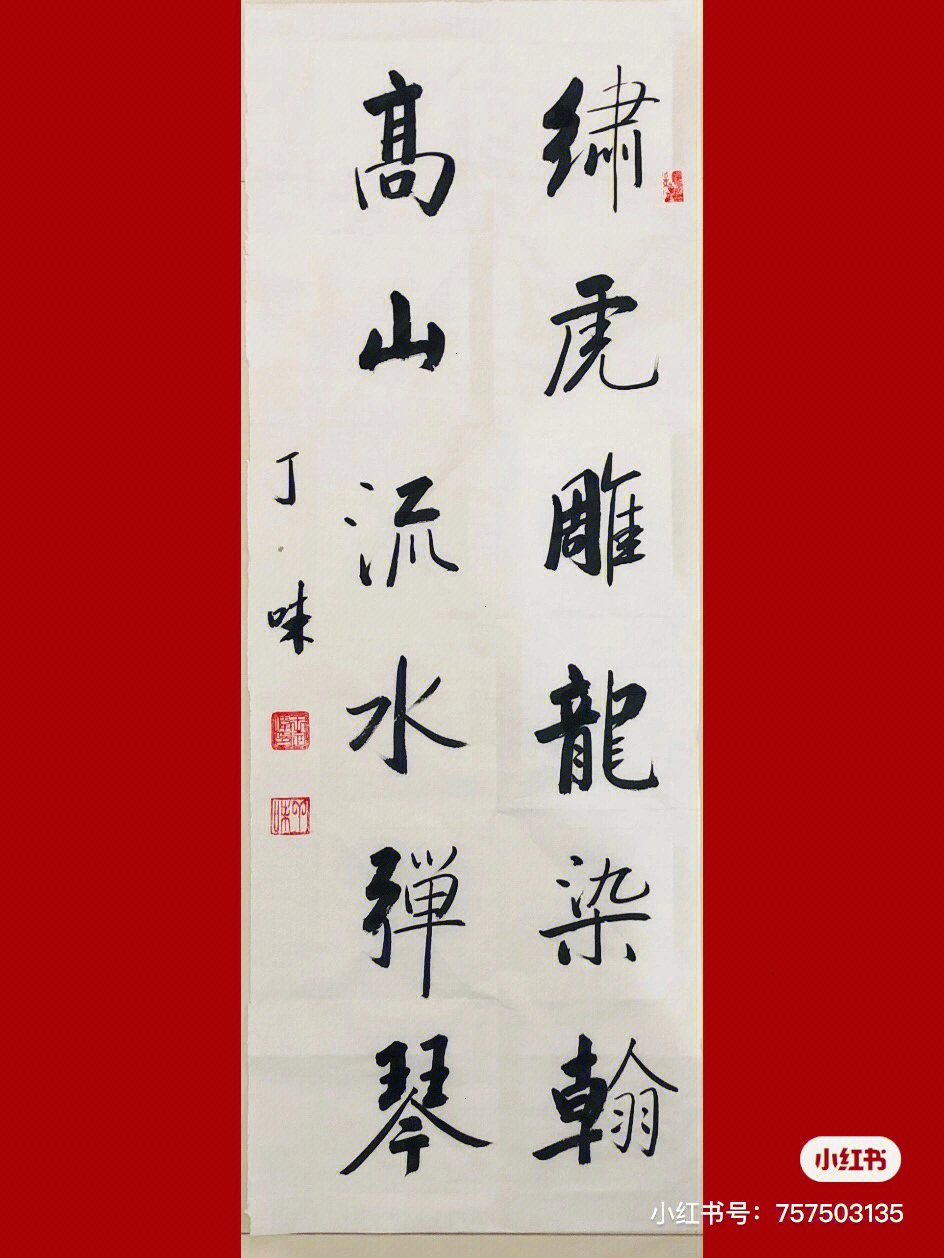 繡虎雕龍染翰
高山流水弹琴
丁味
小红书
小红书号：757503135